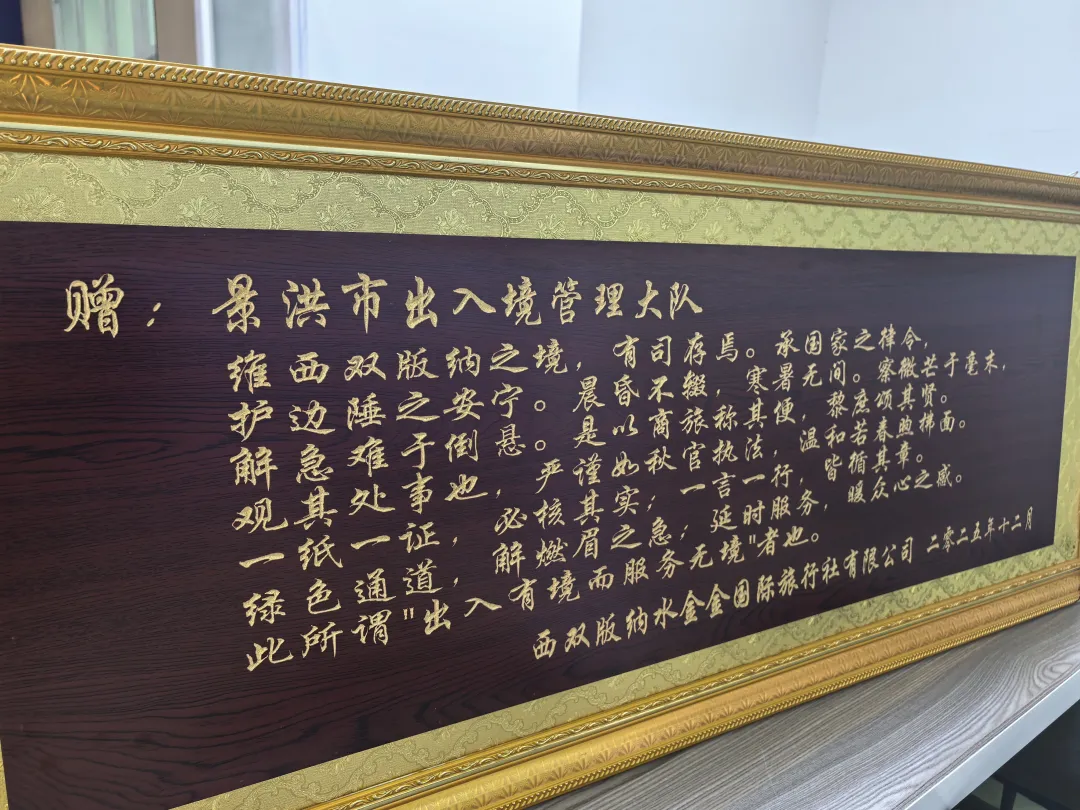 赠：景洪市出入境管理大队
维西双版纳之境，有司存焉。承国家之律令，
护边陲之安宁。晨昏不缀，寒暑无间。察微芒于毫末，
解急难于倒悬。是以商旅称其便，黎庶颂其贤。
观其处事也，严谨如秋官执法，温和若春煦拂面。
一纸一证，必核其实；一言一行，皆循其章。
绿色通道，解燃眉之急；延时服务，暖众心之感。
此所谓"出入有境而服务无境"者也。
西双版纳水金金国际旅行社有限公司 二零二五年十二月